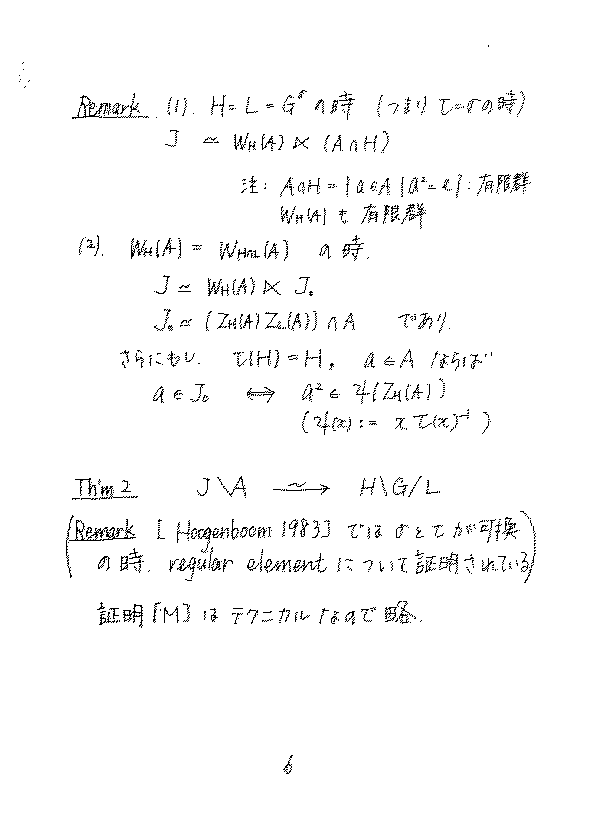 Remark (1). H = L = G^σ の時 (つまり τ=σの時)
J ≃ W_H(A) ⋉ (A∩H)
注: A∩H = {a∈A | a²=e} : 有限群
W_H(A) も 有限群
(2). W_H(A) = W_{H∩L}(A) の時.
J ≃ W_H(A) ⋉ J₀
J₀ ≃ (Z_H(A) Z_L(A)) ∩ A であり.
さらにもし. τ(H) = H, a∈A ならば
a ∈ J₀ ⟺ a² ∈ ψ(Z_H(A))
(ψ(x) := x τ(x)⁻¹)
Th'm 2 J\A ⥲ H\G/L
(Remark [Hoogenboom 1983] では σとτが可換
の時. regular element について証明されている)
証明[M]はテクニカルなので略.
6